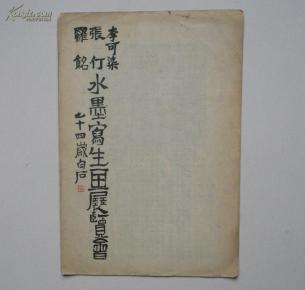 李可染
張仃
羅銘
水墨寫生畫展覽會
九十四歲白石